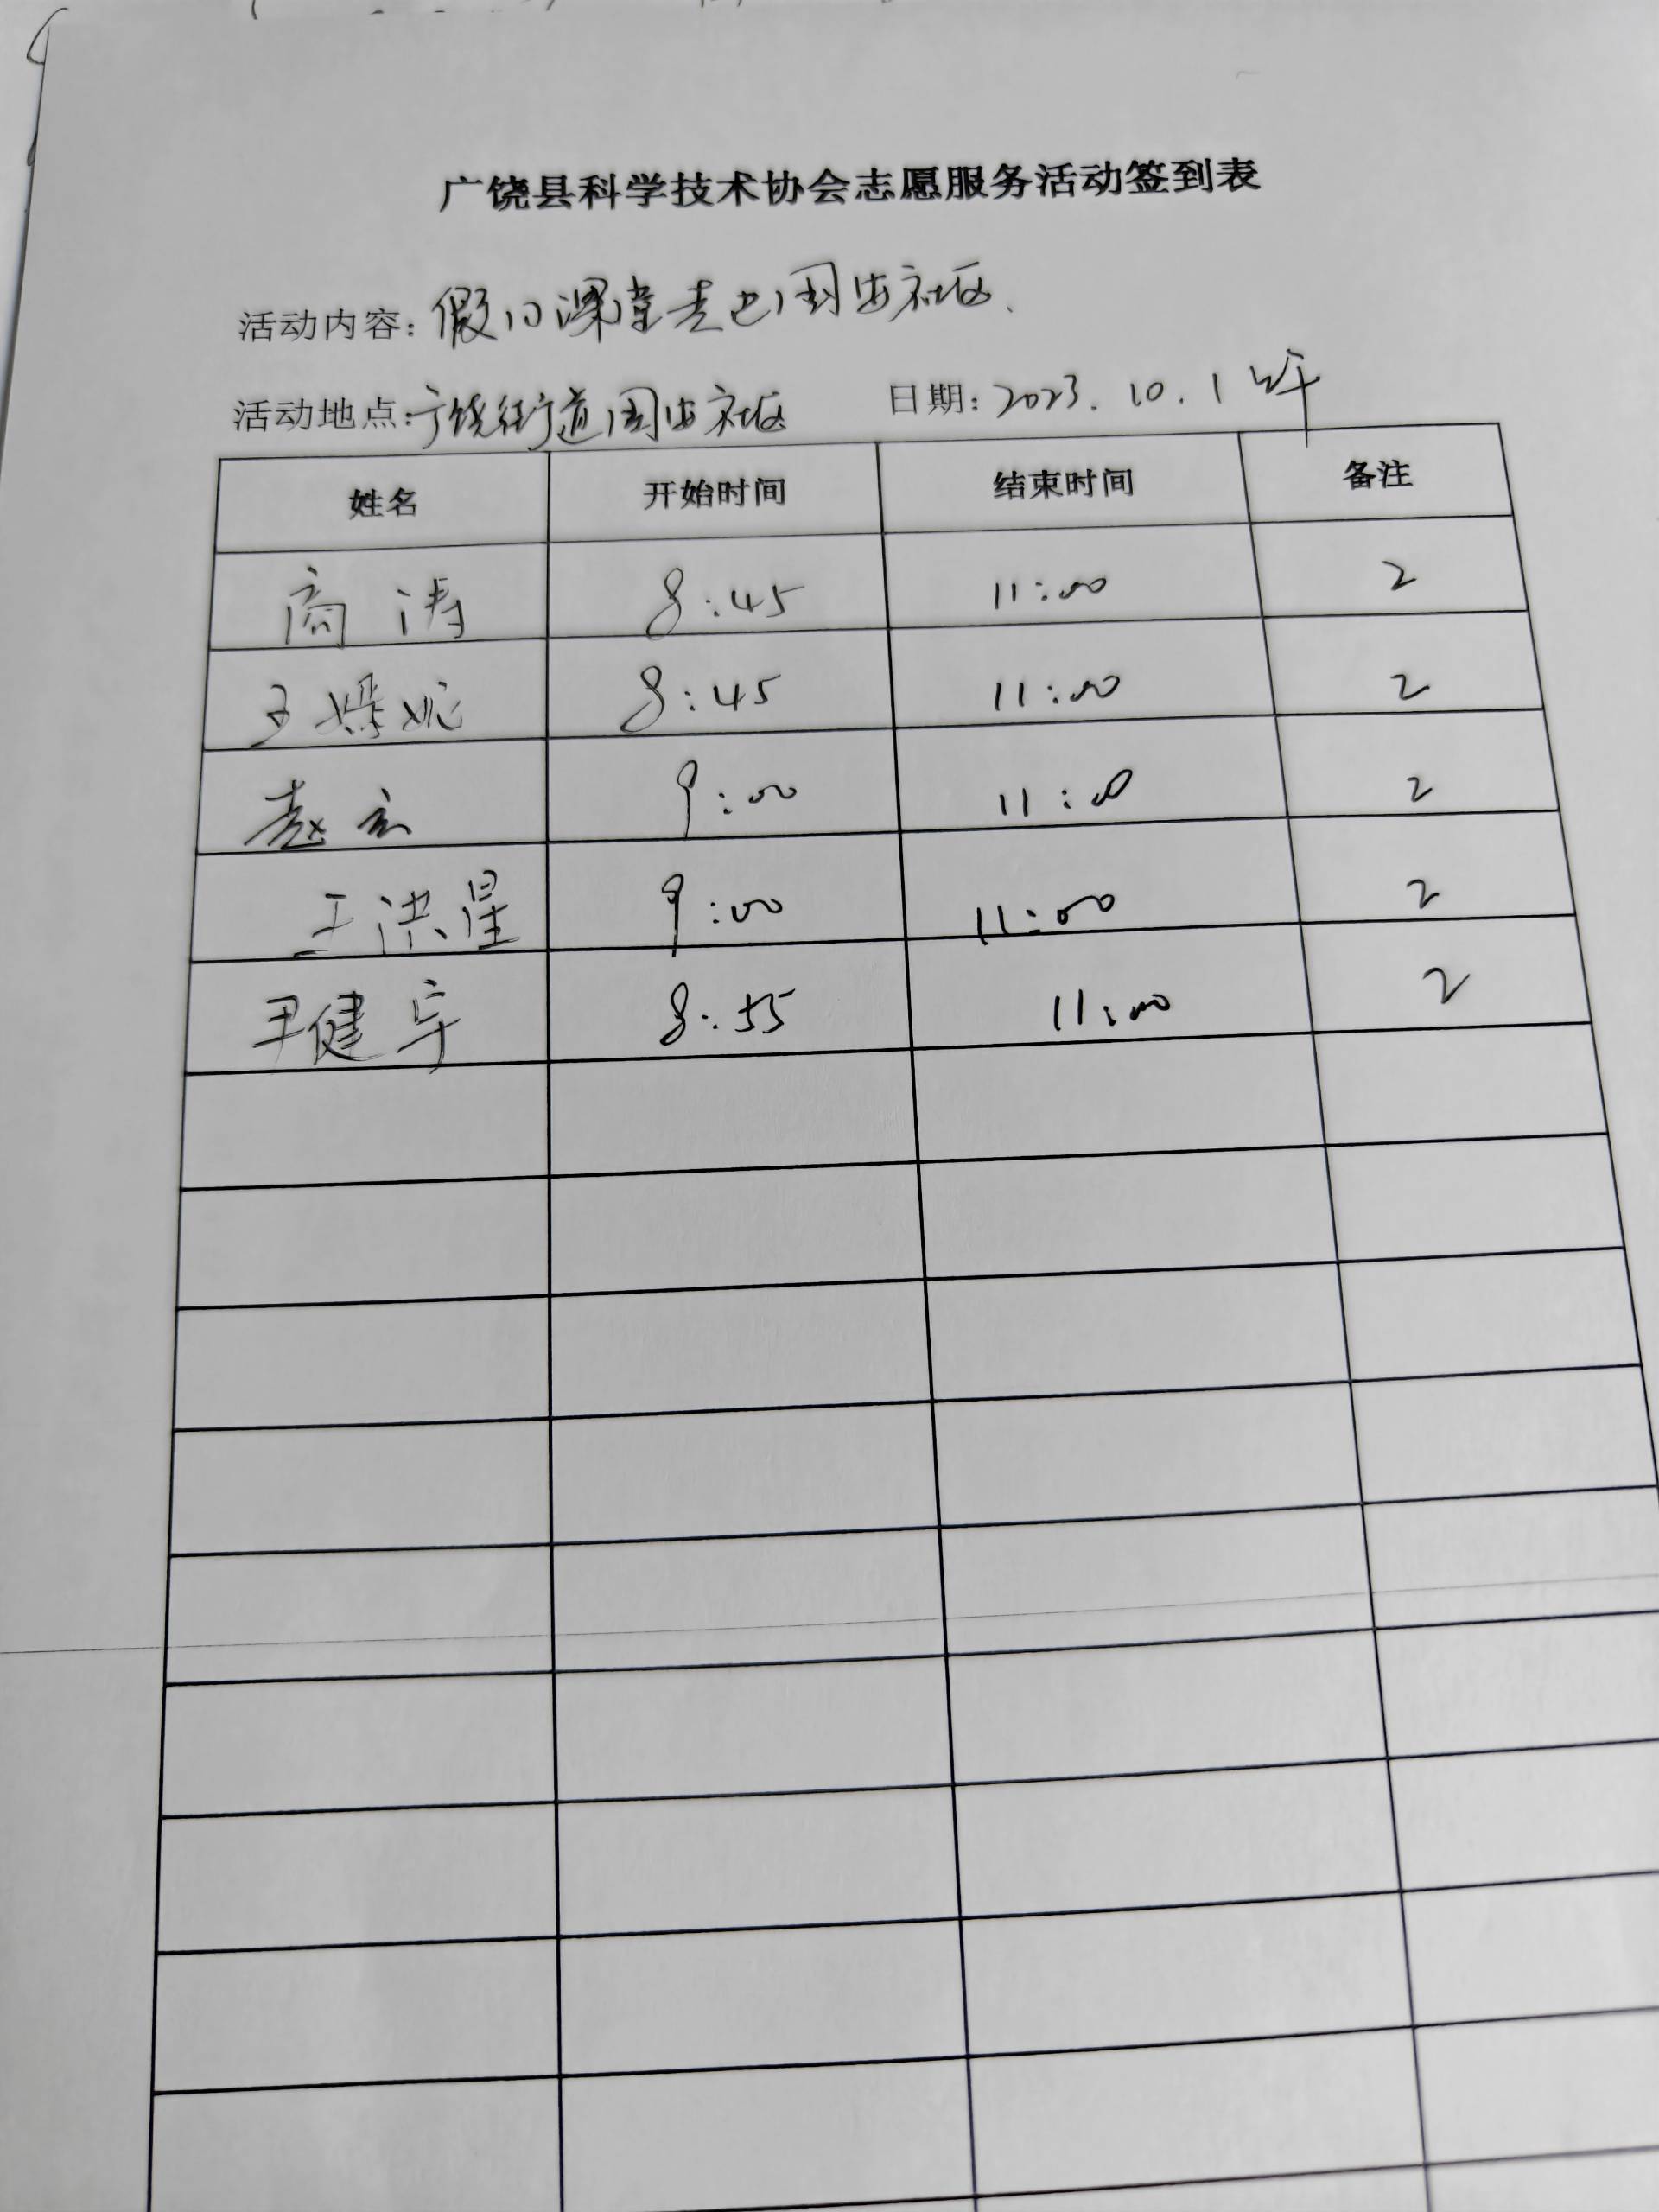 广饶县科学技术协会志愿服务活动签到表
活动内容：假日课堂走进周安社区、
活动地点：广饶街道周安社区 日期：2023.10.1 上午
姓名 开始时间 结束时间 备注
商涛 8:45 11:00 2
王 8:45 11:00 2
赵云 9:00 11:00 2
王洪星 9:00 11:00 2
尹健宇 8:55 11:00 2